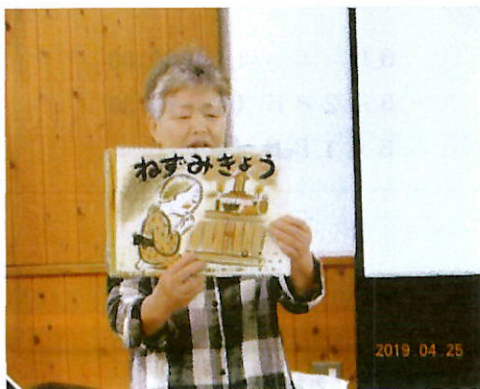 ねずみきょう
2019 04 25